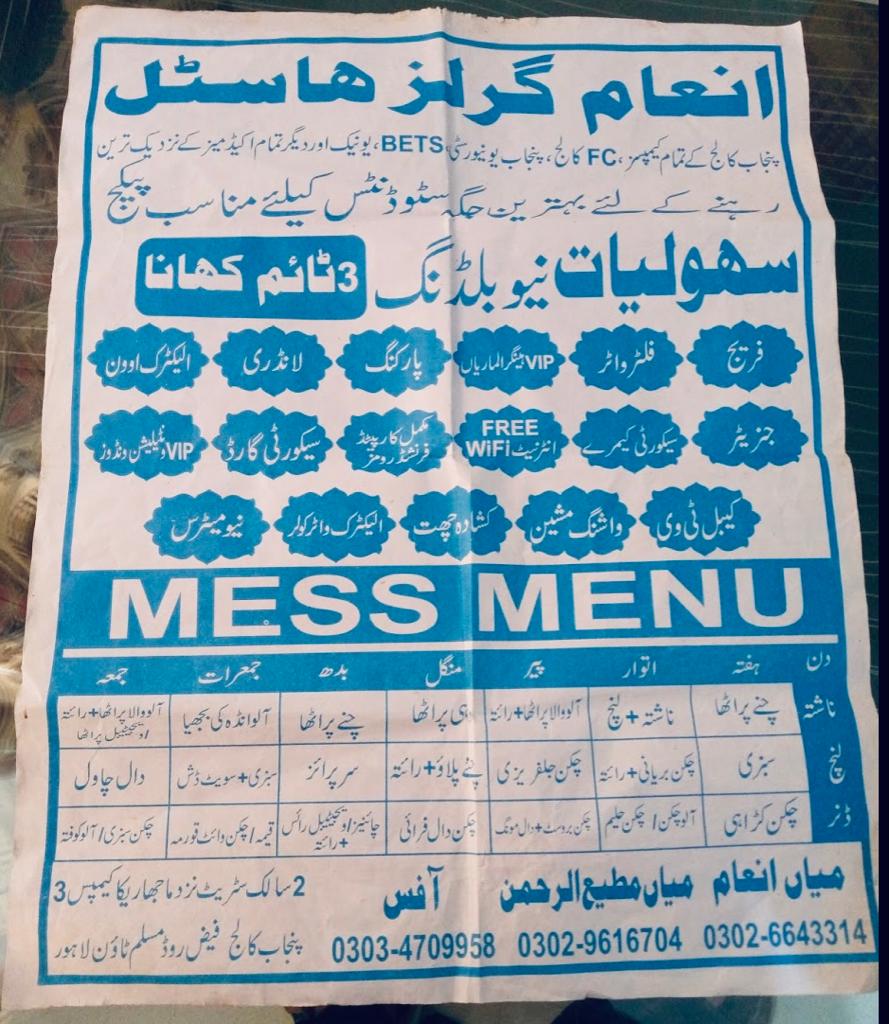 انعام گرلز ھاسٹل
پنجاب کالج کے تمام کیمپسز، FC کالج، پنجاب یونیورسٹی، BETS، یونیک اور دیگر تمام اکیڈمیز کے نزدیک ترین
رہنے کے لئے بہترین جگہ سٹوڈنٹس کیلئے مناسب پیکج
سہولیات نیو بلڈنگ 3 ٹائم کھانا
فریج فلٹر واٹر VIP ہینگر الماریاں پارکنگ لانڈری الیکٹرک اوون
جنریٹر سیکورٹی کیمرے FREE WiFi انٹرنیٹ مکمل کارپیٹڈ فرنشڈ رومز سیکورٹی گارڈ VIP وینٹیلیشن ونڈوز
کیبل ٹی وی واشنگ مشین کشادہ چھت الیکٹرک واٹر کولر نیو میٹرس
MESS MENU
دن ہفتہ اتوار پیر منگل بدھ جمعرات جمعہ
ناشتہ چنے پراٹھا ناشتہ + لنچ آلو والا پراٹھا + رائتہ دہی پراٹھا چنے پراٹھا آلو انڈہ کی بجھیا آلو والا پراٹھا + رائتہ / ویجیٹیبل پراٹھا
لنچ سبزی چکن بریانی + رائتہ چکن جلفریزی چنے پلاؤ + رائتہ سرپرائز سبزی + سویٹ ڈش دال چاول
ڈنر چکن کڑاہی آلو چکن / چکن حلیم چکن بروسٹ + دال مونگ چکن دال فرائی چائنیز / ویجیٹیبل رائس + رائتہ قیمہ / چکن وائٹ قورمہ چکن سبزی / آلو کوفتہ
میاں انعام میاں مطیع الرحمن آفس
0302-6643314 0302-9616704 0303-4709958
2 سالک سٹریٹ نزد ماجھا ریکا کیمپس 3
پنجاب کالج فیض روڈ مسلم ٹاؤن لاہور